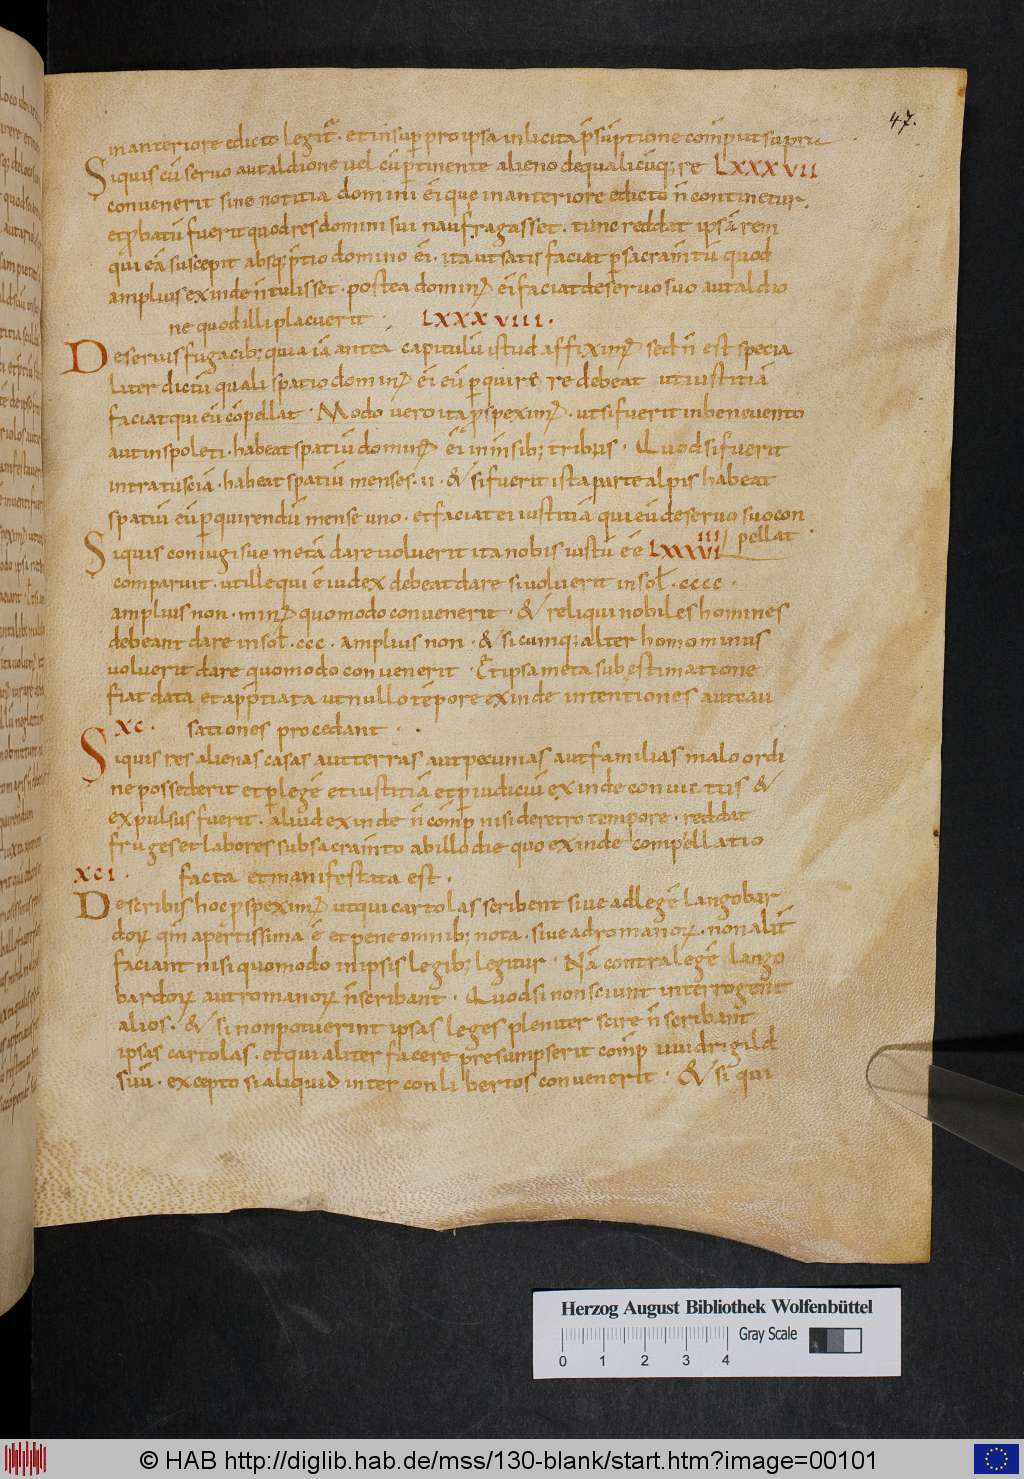 47.
in anteriore edicto legit̄. et insup pro ipsa inlicita p̄sūptione comp̄ ut supru
Siquis cū servo aut aldione vel cū ptinente alieno de qualicūq; re LXXXVII
convenerit sine notitia domini ēi que in anteriore edicto n̄ continetur,
et pbatū fuerit quod res domini sui naufragasset. tunc reddat ipsā rem
qui eā suscepit absq; p̄tio domino ēi. ita ut satisfaciat p sacram̄tū quod
amplius exinde n̄ tulisset. postea domin; ēi faciat de servo suo aut aldio
ne quod illi placuerit. LXXXVIII.
De servis fugacib; quia iā antea capitulū istud affixim; sed n̄ est specia
liter dictū quali spatio domin; ēi eū pquirere debeat ut iustitiā
faciat qui eū cōpellat. Modo vero ita pspexim;. ut si fuerit in benevento
aut in spoleti. habeat spatiū domin; ēi in m̄sib; tribus. Quod si fuerit
intra tusciā. habeat spatiū menses. ii. & si fuerit ista parte alpis habeat
spatiū eū pquirendū mense uno. et faciat ei iustitiā qui eū de servo suo con
Siquis coniugi sue metā dare voluerit ita nobis iustū ēe LXXXVIIII pellat.
comparuit. ut ille qui ē iudex debeat dare si voluerit in sol̄. cccc.
amplius non. min; quomodo convenerit. & reliqui nobiles homines
debeant dare in sol̄. ccc. amplius non. & si cumq; alter homo minus
voluerit dare quomodo convenerit. Et ipsa meta sub estimatione
fiat data et app̄tiata ut nullo tēpore exinde intentiones aut cau
XC. sationes procedant.
Siquis res alienas casas aut terras aut pecunias aut familias malo ordi
ne possederit et p legē et iustitiā et p iudiciū exinde convictus &
expulsus fuerit. aliud exinde n̄ comp̄ nisi de retro tempore. reddat
fruges et labores sub sacram̄to ab illo die quo exinde compellatio
XCI. facta et manifestata est.
De scribis hoc pspexim; ut qui cartolas scribent sive ad legē langobar
dorꝝ qm̄ apertissima ē et pene omnib; nota. sive ad romanorꝝ. non alit̄
faciant nisi quomodo in ipsis legib; legitur. Nā contra legē lango
bardorꝝ aut romanorꝝ n̄ scribant. Quod si non sciunt interrogent
alios. & si non potuerint ipsas leges pleniter scire n̄ scribant
ipsas cartolas. et qui aliter facere presumpserit comp̄ uuidrigild
suū. excepto si aliquid inter conlibertos convenerit. & si qui
Herzog August Bibliothek Wolfenbüttel
0 1 2 3 4 Gray Scale
© HAB http://diglib.hab.de/mss/130-blank/start.htm?image=00101